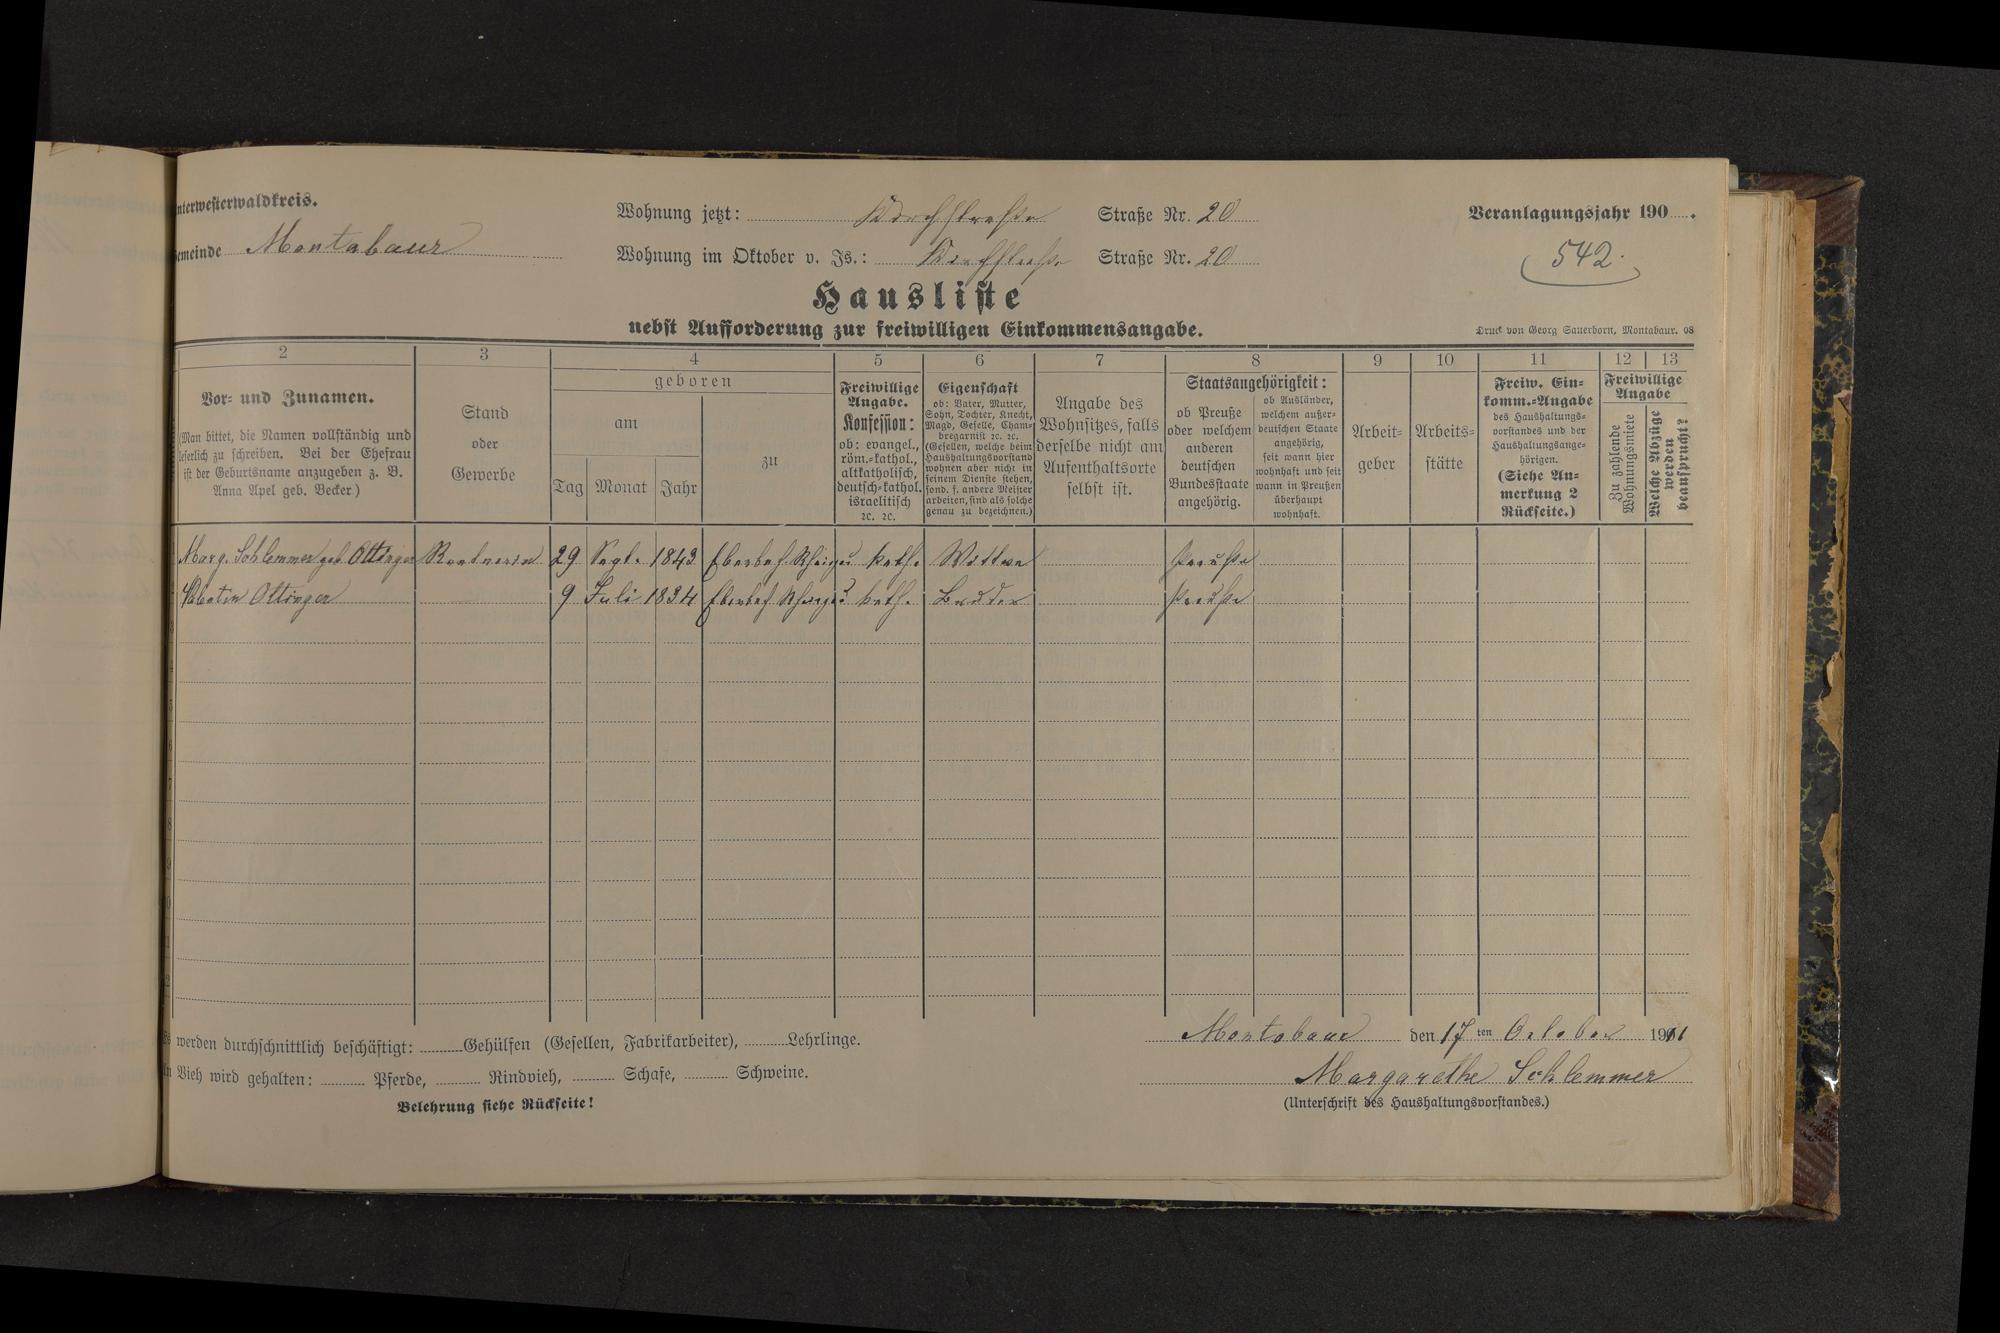 nterwesterwaldkreis.
emeinde Montabaur
Wohnung jetzt: Kirchstraße Straße Nr. 20
Wohnung im Oktober v. Js.: Kirchstraße Straße Nr. 20
Veranlagungsjahr 190 .
542.
Hausliste
nebst Aufforderung zur freiwilligen Einkommensangabe.
Druck von Georg Sauerborn, Montabaur. 08
2 3 4 5 6 7 8 9 10 11 12 13
Vor- und Zunamen.
(Man bittet, die Namen vollständig und
leserlich zu schreiben. Bei der Ehefrau
ist der Geburtsname anzugeben z. B.
Anna Apel geb. Becker)
Stand
oder
Gewerbe
geboren
am
Tag Monat Jahr
zu
Freiwillige
Angabe.
Konfession:
ob: evangel.,
röm.-kathol.,
altkatholisch,
deutsch-kathol.
israelitisch
ꝛc. ꝛc.
Eigenschaft
ob: Vater, Mutter,
Sohn, Tochter, Knecht,
Magd, Geselle, Cham-
bregarnist ꝛc. ꝛc.
(Gesellen, welche beim
Haushaltungsvorstand
wohnen aber nicht in
seinem Dienste stehen,
sond. f. andere Meister
arbeiten, sind als solche
genau zu bezeichnen.)
Angabe des
Wohnsitzes, falls
derselbe nicht am
Aufenthaltsorte
selbst ist.
Staatsangehörigkeit:
ob Preuße
oder welchem
anderen
deutschen
Bundesstaate
angehörig.
ob Ausländer,
welchem außer-
deutschen Staate
angehörig,
seit wann hier
wohnhaft und seit
wann in Preußen
überhaupt
wohnhaft.
Arbeit-
geber
Arbeits-
stätte
Freiw. Ein-
komm.-Angabe
des Haushaltungs-
vorstandes und der
Haushaltungsange-
hörigen.
(Siehe An-
merkung 2
Rückseite.)
Freiwillige
Angabe
Zu zahlende
Wohnungsmiete
Welche Abzüge
werden
beansprucht?
Marg. Schlemmer geb. Ottinger Rentnerin 29 Sept. 1843 Eberbach Rheingau kath. Wittwe Preuße
Valentin Ottinger 9 Juli 1834 Eberbach Rheingau kath. Bruder Preuße
werden durchschnittlich beschäftigt: Gehülfen (Gesellen, Fabrikarbeiter), Lehrlinge.
An Vieh wird gehalten: Pferde, Rindvieh, Schafe, Schweine.
Belehrung siehe Rückseite!
Montabaur den 17 ten October 1911
Margarethe Schlemmer
(Unterschrift des Haushaltungsvorstandes.)